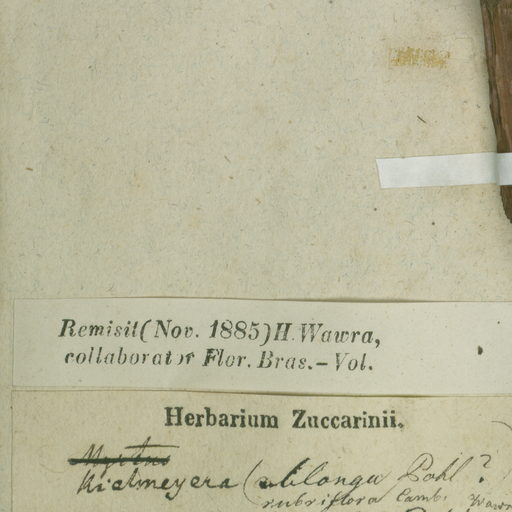 Remisit (Nov. 1885) H. Wawra,
collaborator Flor. Bras. – Vol.
Herbarium Zuccarinii.
Myrtus
Kielmeyera (oblonga Pohl ?
rubriflora Camb. Wawr